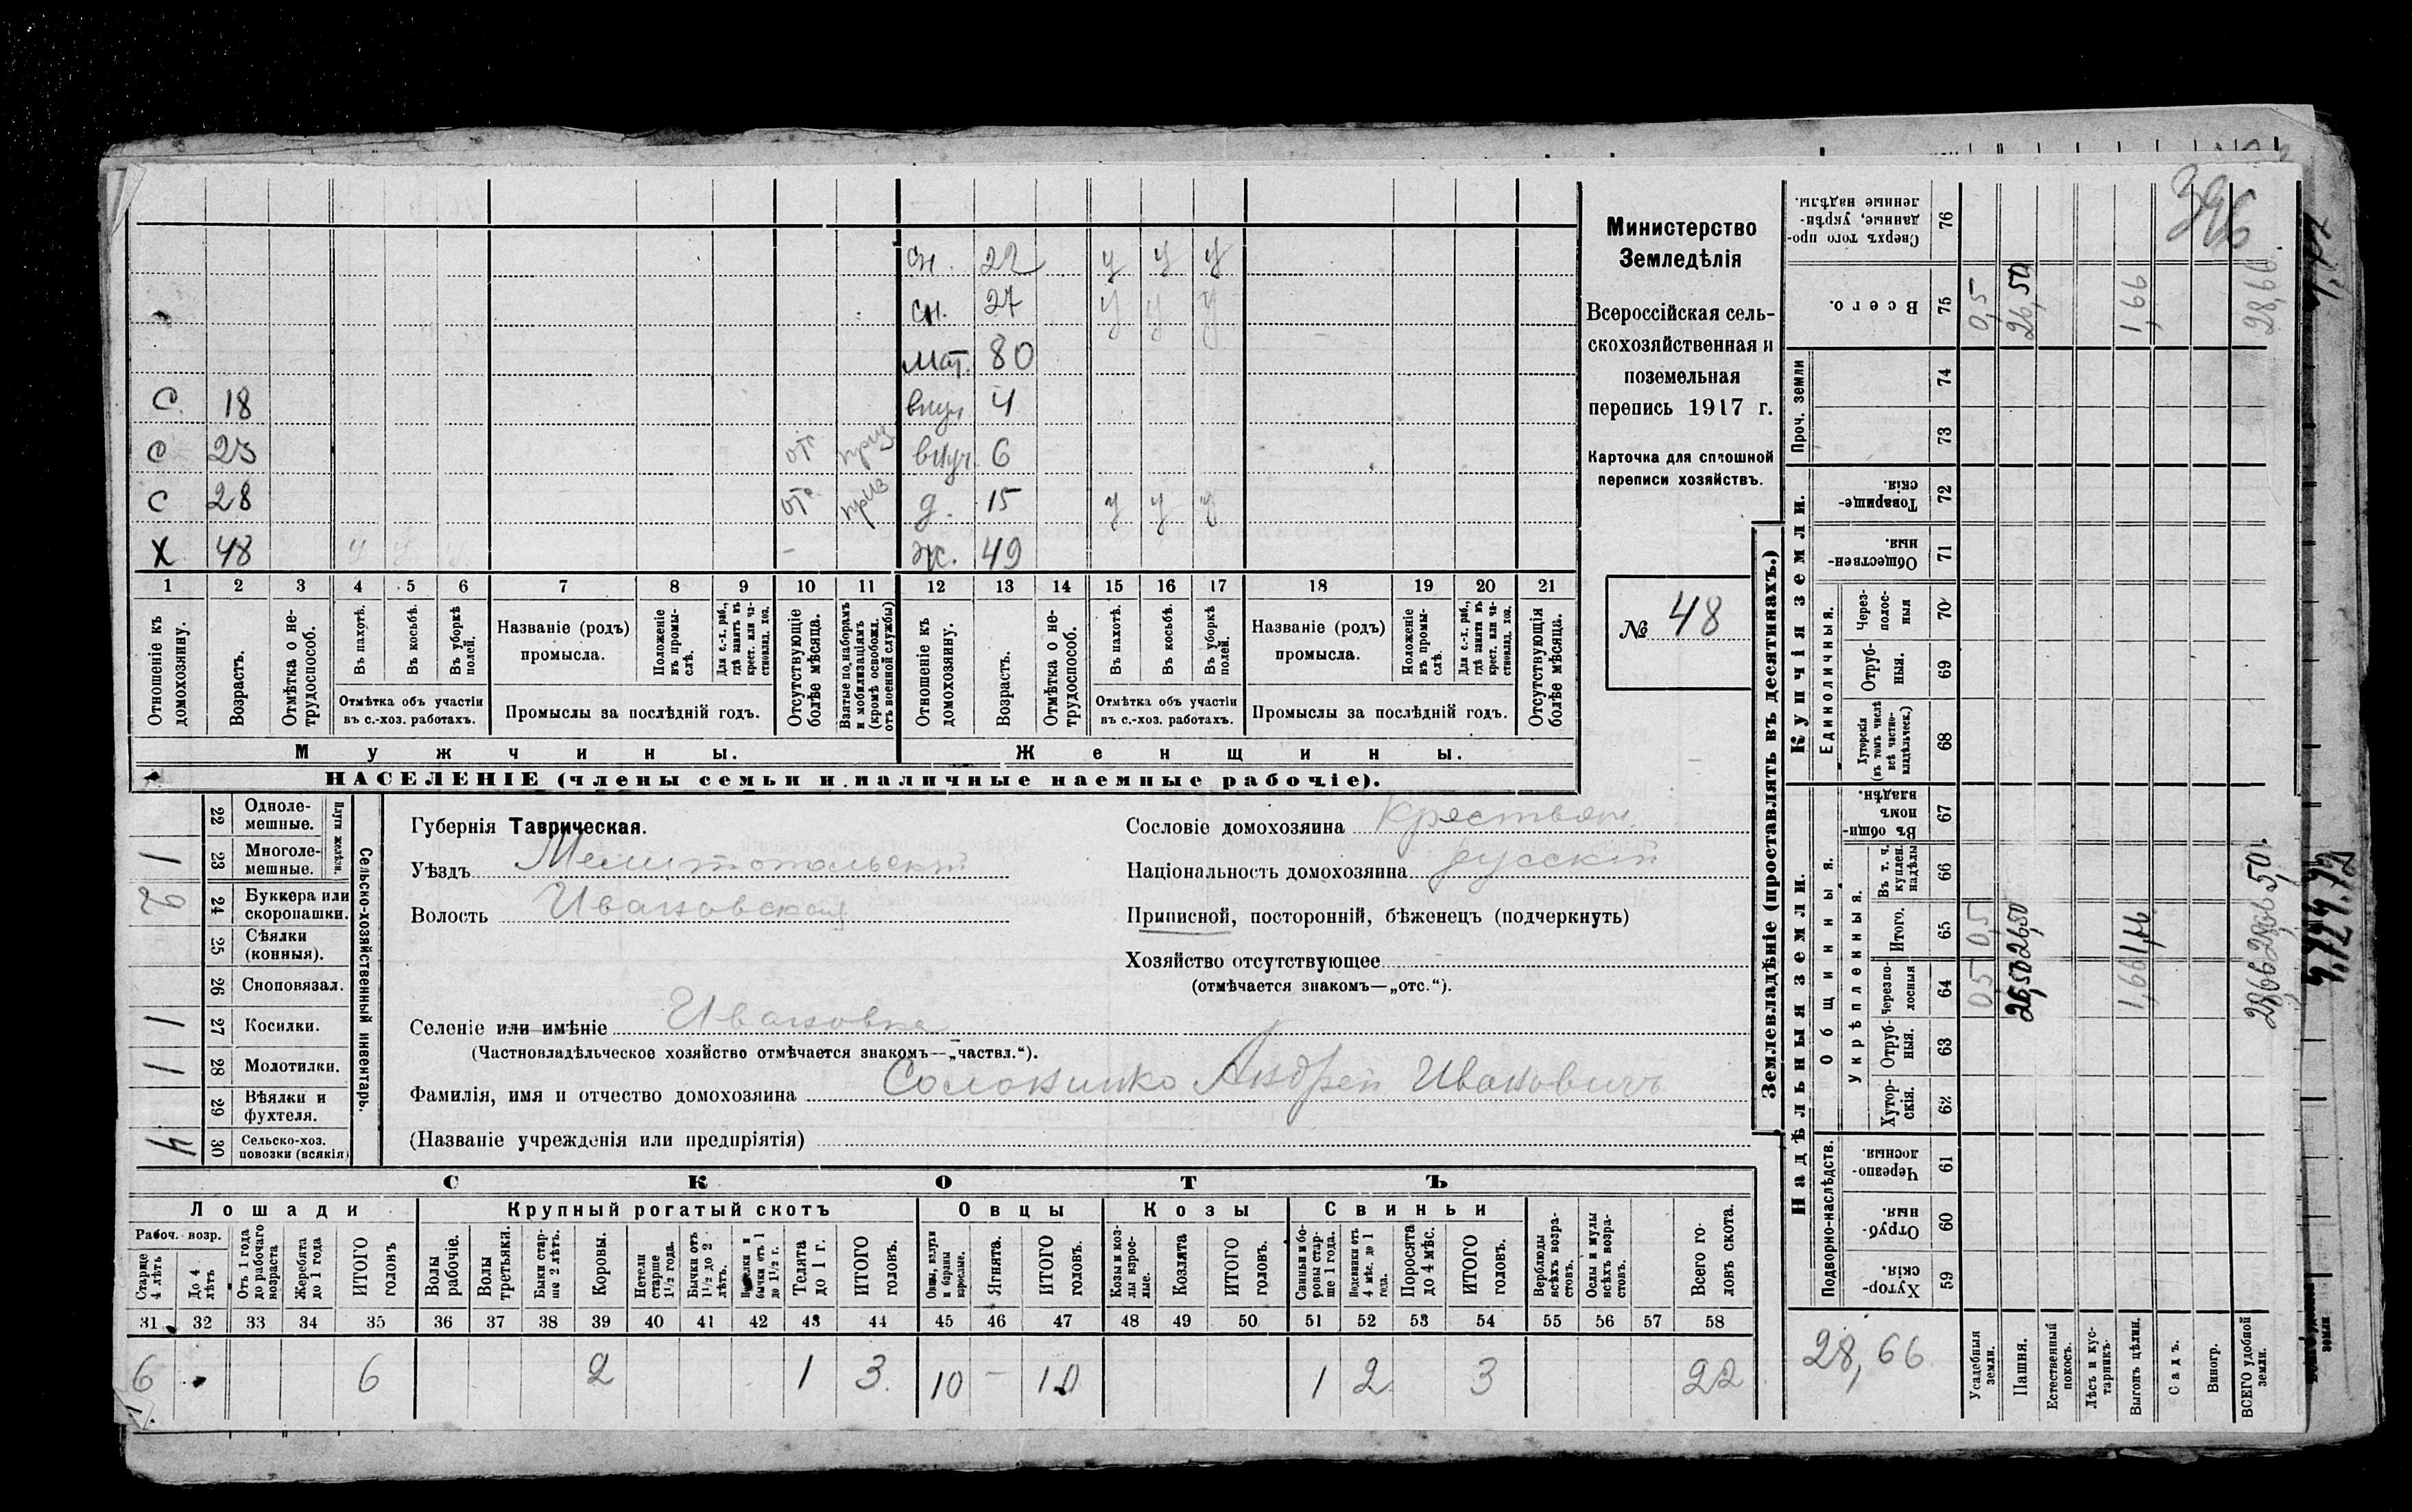 396
сн. 22 у у у
сн. 27 у у у
мат. 80
С. 18 внуч 4
С 23 отс приз внуч. 6
С 28 отс приз д. 15 у у у
Х 48 у у у - ж. 49
1 2 3 4 5 6 7 8 9 10 11 12 13 14 15 16 17 18 19 20 21
Отношеніе къ домохозяину.
Возрастъ.
Отмѣтка о не-трудоспособ.
Въ пахотѣ.
Въ косьбѣ.
Въ уборкѣ полей.
Отмѣтка объ участіи въ с.-хоз. работахъ.
Названіе (родъ) промысла.
Положеніе въ промы-слѣ.
Для с.-х. раб., гдѣ занятъ въ крест. или ча-стновлад. хоз.
Промыслы за послѣдній годъ.
Отсутствующіе болѣе мѣсяца.
Взятые по наборамъ и мобилизаціямъ (кромѣ освобожд. отъ военной службы)
Отношеніе къ домохозяину.
Возрастъ.
Отмѣтка о не-трудоспособ.
Въ пахотѣ.
Въ косьбѣ.
Въ уборкѣ полей.
Отмѣтка объ участіи въ с.-хоз. работахъ.
Названіе (родъ) промысла.
Положеніе въ промы-слѣ.
Для с.-х. раб., гдѣ занята въ крест. или ча-стновлад. хоз.
Промыслы за послѣдній годъ.
Отсутствующія болѣе мѣсяца.
Мужчины. Женщины.
НАСЕЛЕНІЕ (члены семьи и наличные наемные рабочіе).
Министерство
Земледѣлія
Всероссійская сель-
скохозяйственная и
поземельная
перепись 1917 г.
Карточка для сплошной
переписи хозяйствъ.
№ 48
Сельско-хозяйственный инвентарь.
Плуги желѣзн.
22 Одноле-мешные.
1 23 Многоле-мешные.
2 24 Буккера или скоропашки.
25 Сѣялки (конныя).
26 Сноповязал.
1 27 Косилки.
1 28 Молотилки.
29 Вѣялки и фухтеля.
4 30 Сельско-хоз. повозки (всякія)
Губернія Таврическая.
Уѣздъ Мелитопольскій
Волость Ивановская
Селеніе или имѣніе Ивановка
(Частновладѣльческое хозяйство отмѣчается знакомъ—„частвл.“).
Фамилія, имя и отчество домохозяина Солокишко Андрей Ивановичъ
(Названіе учрежденія или предпріятія)
Сословіе домохозяина крестьян.
Національность домохозяина русскій
Приписной, посторонній, бѣженецъ (подчеркнуть)
Хозяйство отсутствующее
(отмѣчается знакомъ—„отс.“).
СКОТЪ
Лошади Крупный рогатый скотъ Овцы Козы Свиньи
Рабоч. возр.
Старше 4 лѣтъ
До 4 лѣтъ
Отъ 1 года до рабочаго возраста
Жеребята до 1 года
ИТОГО головъ
Волы рабочіе.
Волы третьяки.
Быки стар-ше 2 лѣтъ.
Коровы.
Нетели старше 1½ года.
Бычки отъ 1½ до 2 лѣтъ.
Телки и бычки отъ 1 до 1½ г.
Телята до 1 г.
ИТОГО головъ.
Овцы, валухи и бараны взрослые.
Ягнята.
ИТОГО головъ.
Козы и коз-лы взрос-лые.
Козлята
ИТОГО головъ.
Свиньи и бо-ровы стар-ше 1 года.
Подсвинки отъ 4 мѣс. до 1 года.
Поросята до 4 мѣс.
ИТОГО головъ.
Верблюды всѣхъ возра-стовъ.
Ослы и мулы всѣхъ возра-стовъ.
Всего го-ловъ скота.
31 32 33 34 35 36 37 38 39 40 41 42 43 44 45 46 47 48 49 50 51 52 53 54 55 56 57 58
6 6 2 1 3. 10 — 10 1 2 3 22
Землевладѣніе (проставлять въ десятинахъ.)
Надѣльныя земли. Купчія земли. Проч. земли
Подворно-наслѣдств. Общинныя. Укрѣпленныя. Единоличныя.
59 Хутор-скія.
60 Отруб-ныя.
61 Черезпо-лосныя.
62 Хутор-скія.
63 Отруб-ныя.
64 Черезпо-лосныя
65 Итого.
66 Въ т. ч. куплен. надѣлы
67 Въ общин-номъ владѣн.
68 Хуторскія (въ томъ числѣ всѣ частно-владѣльческ.)
69 Отруб-ныя.
70 Через-полос-ныя
71 Обществен-ныя.
72 Товарище-скія.
73
74
75 Всего.
76 Сверхъ того про-данные, укрѣп-ленные надѣлы.
28,66
Усадебныя земли. 0,5 0,5 0,5
Пашня. 26,50 26,50 26,50
Естественный покосъ.
Лѣсъ и кус-тарникъ.
Выгонъ цѣлин. 1,66 1,66 1,66
Садъ.
Виногр.
ВСЕГО удобной земли. 28,66 28,66 28,66